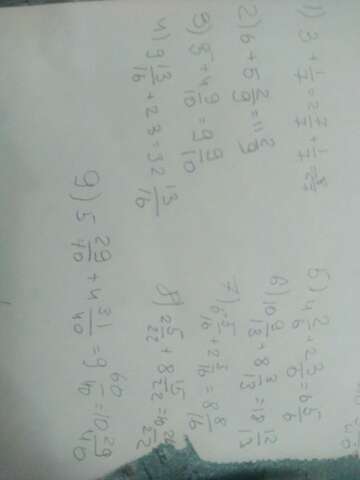 1) 3 + 1/7 = 2 7/7 + 1/7 = 2 8/7
2) 6 + 5 2/9 = 11 2/9
3) 5 + 4 9/10 = 9 9/10
4) 9 13/16 + 23 = 32 13/16
5) 4 2/6 + 2 3/6 = 6 5/6
6) 10 9/13 + 8 3/13 = 18 12/13
7) 6 5/16 + 2 3/16 = 8 8/16
8) 2 5/22 + 8 15/22 = 10 20/22
9) 5 29/40 + 4 31/40 = 9 60/40 = 10 29/40